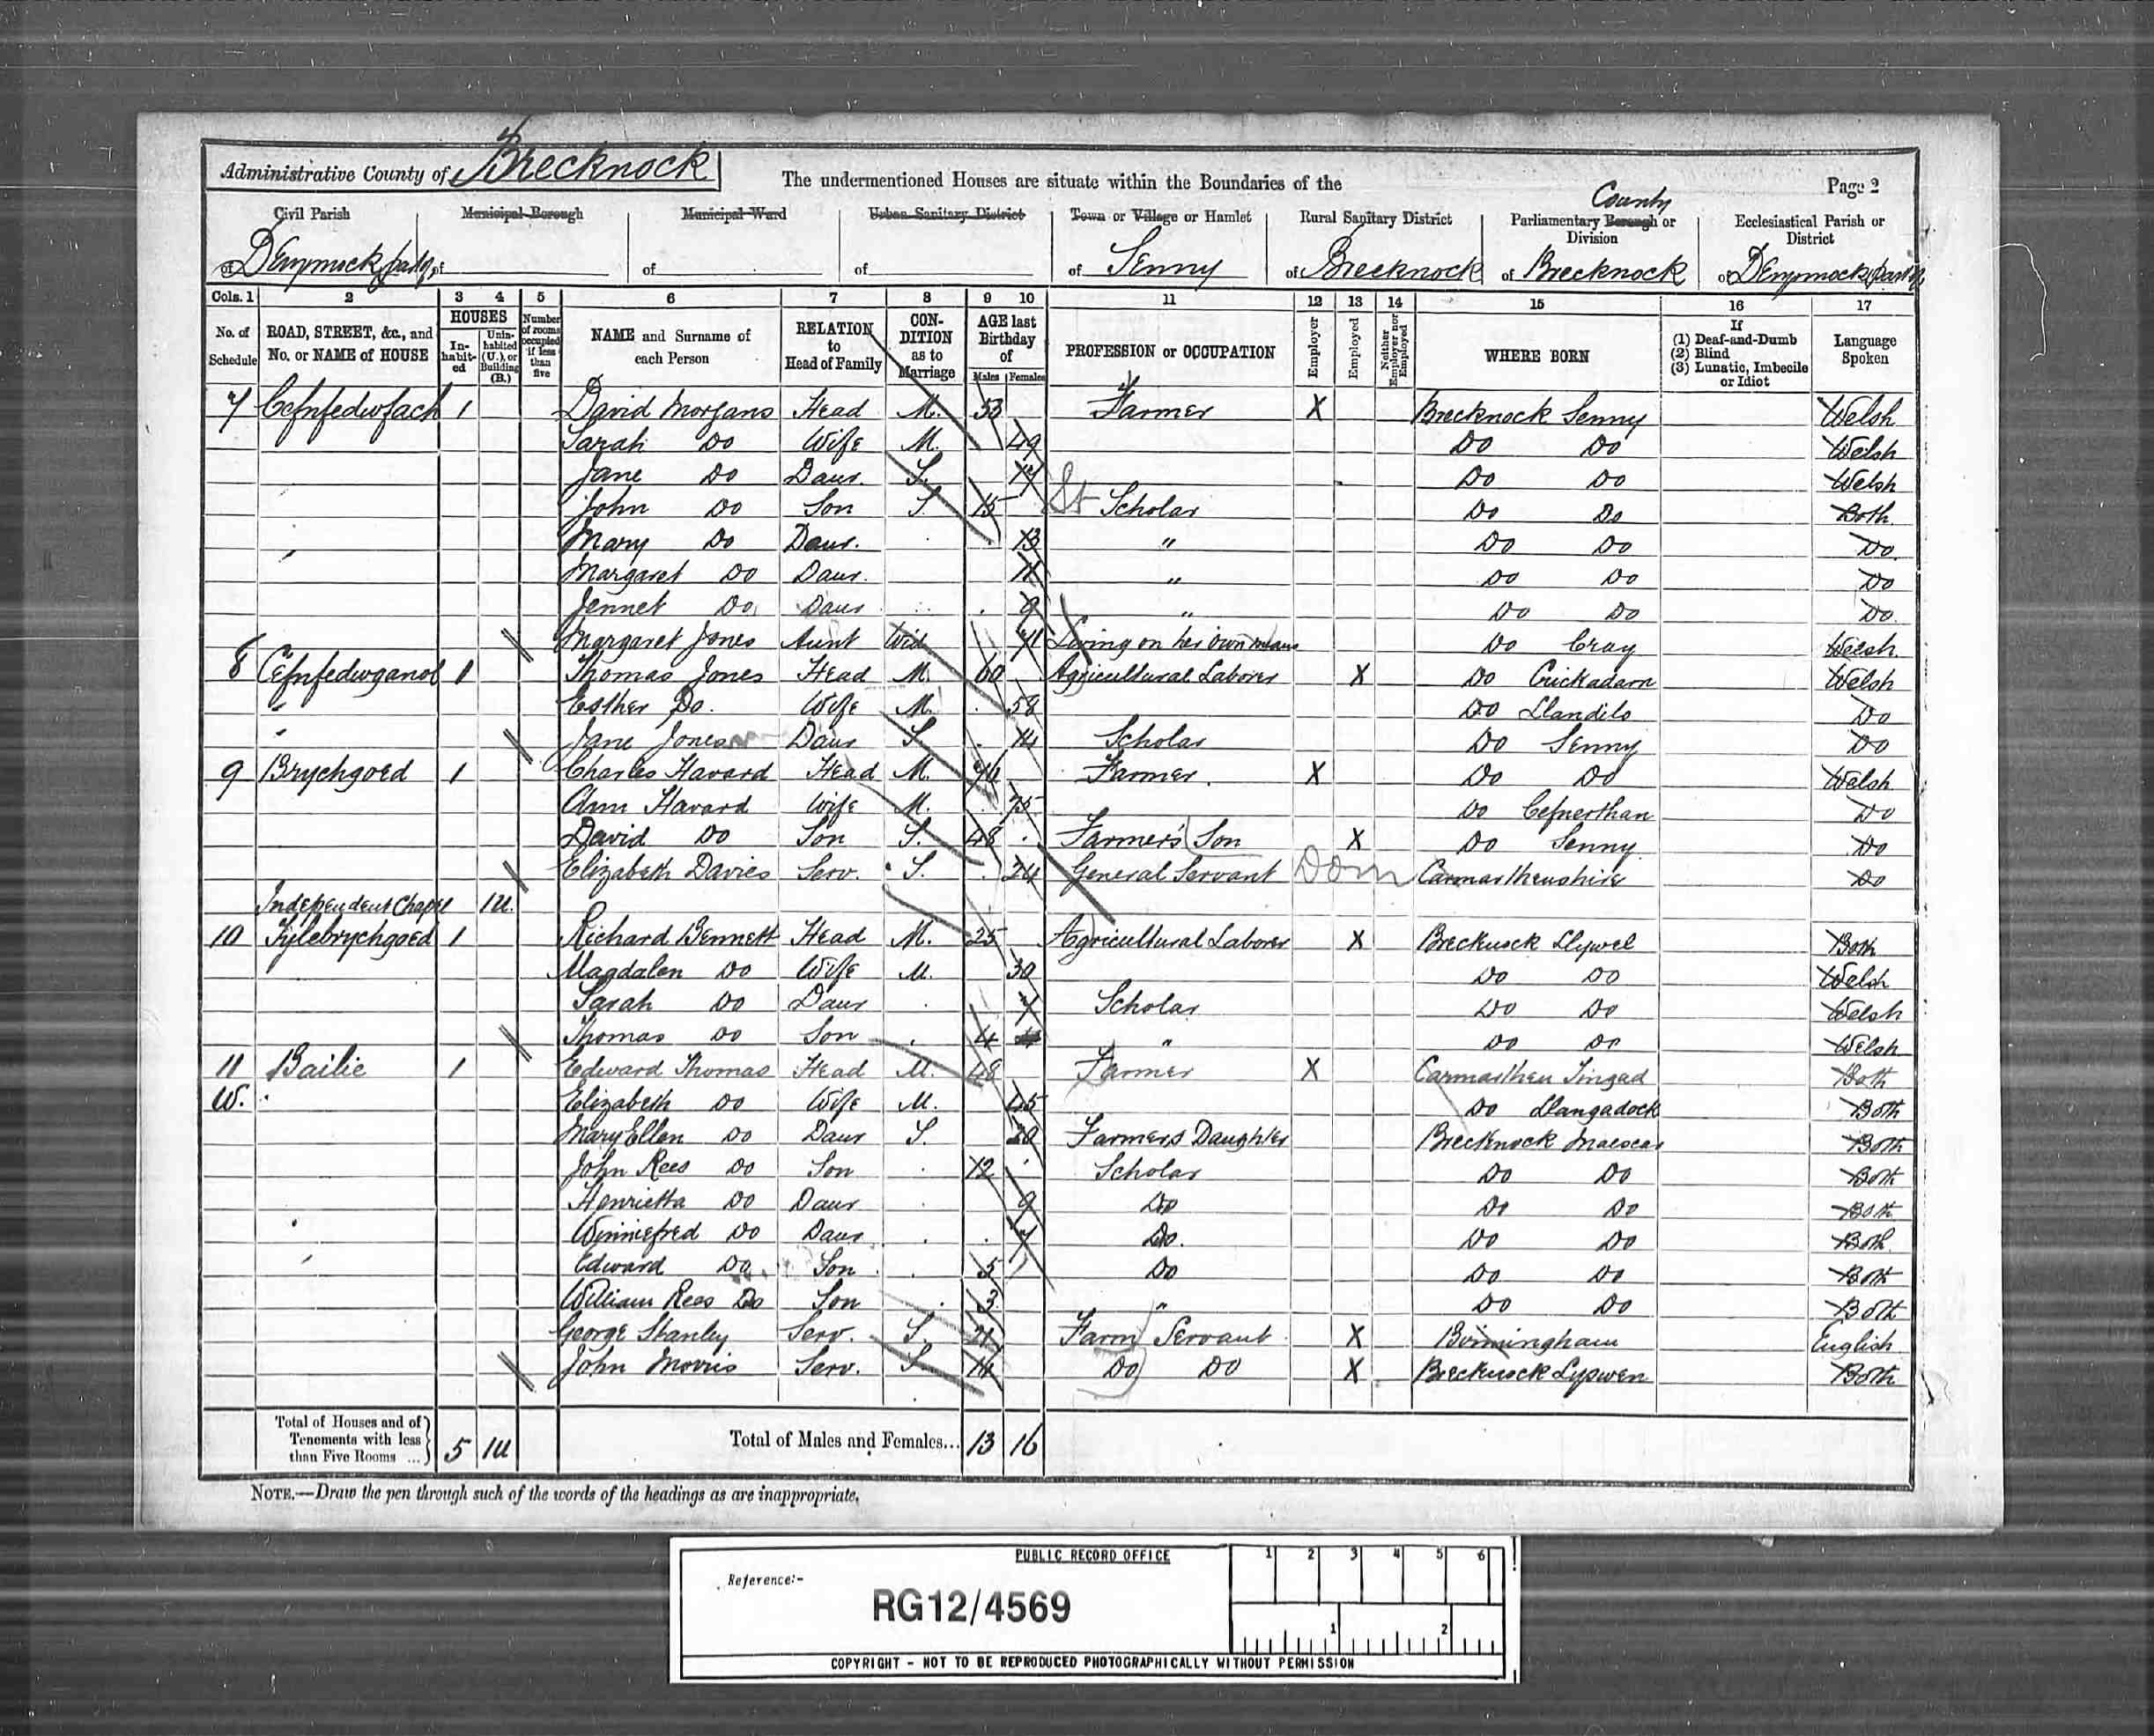 Administrative County of Brecknock
The undermentioned Houses are situate within the Boundaries of the
Page 2
Civil Parish Municipal Borough Municipal Ward Urban Sanitary District Town or Village or Hamlet Rural Sanitary District Parliamentary Borough or County Division Ecclesiastical Parish or District
of Devynnock part of of of of of Senny of Brecknock of Brecknock of Devynnock part of
Cols. 1 2 3 4 5 6 7 8 9 10 11 12 13 14 15 16 17
No. of Schedule ROAD, STREET, &c., and No. or NAME of HOUSE HOUSES In-habit-ed Unin-habited (U.), or Building (B.) Number of rooms occupied if less than five NAME and Surname of each Person RELATION to Head of Family CON-DITION as to Marriage AGE last Birthday of Males Females PROFESSION or OCCUPATION Employer Employed Neither Employer nor Employed WHERE BORN If (1) Deaf-and-Dumb (2) Blind (3) Lunatic, Imbecile or Idiot Language Spoken
7 Cefnfedwfach 1 David Morgans Head M. 53 Farmer X Brecknock Senny Welsh
Sarah Do Wife M. 49 Do Do Welsh
Jane Do Daur. S. 17 Do Do Welsh
John Do Son S. 15 St Scholar Do Do Both
Mary Do Daur. 13 " Do Do Do
Margaret Do Daur. 11 " Do Do Do
Jennet Do Daur 9 " Do Do Do
Margaret Jones Aunt Wid 71 Living on her own means Do Cray Welsh
8 Cefnfedwganol 1 Thomas Jones Head M. 60 Agricultural Laborer X Do Crickadarn Welsh
Esther Do. Wife M. 58 Do Llandilo Do
Jane Jones Daur S. 14 Scholar Do Senny Do
9 Brychgoed 1 Charles Havard Head M. 74 Farmer X Do Do Welsh
Ann Havard Wife M. 75 Do Do
David Do Son S. 48 Farmer's Son X Do Senny Do
Elizabeth Davies Serv. S. 24 General Servant Dom Carmarthenshire Do
Independent Chapel 1U.
10 Tylebrychgoed 1 Richard Bennett Head M. 25 Agricultural Laborer X Brecknock Llywel Both
Magdalen Do Wife M. 30 Do Do Welsh
Sarah Do Daur 7 Scholar Do Do Welsh
Thomas Do Son 4 " Do Do Welsh
11 Bailie 1 Edward Thomas Head M. 48 Farmer X Carmarthen Both
W. Elizabeth Do Wife M. 45 Do Llangadock Both
Mary Ellen Do Daur S. 20 Farmers Daughter Brecknock Maescar Both
John Rees Do Son 12 Scholar Do Do Both
Henrietta Do Daur 9 Do Do Do Both
Winniefred Do Daur 7 Do. Do Do Both
Edward Do Son 5 Do Do Do Both
William Rees Do Son 3 " Do Do Both
George Stanley Serv. S. 21 Farm Servant X Birmingham English
John Morris Serv. S 14 Do Do X Brecknock Both
Total of Houses and of Tenements with less than Five Rooms ... 5 1U Total of Males and Females... 13 16
NOTE.—Draw the pen through such of the words of the headings as are inappropriate.
PUBLIC RECORD OFFICE
1 2 3 4 5 6
Reference:-
RG12/4569
1 2
COPYRIGHT - NOT TO BE REPRODUCED PHOTOGRAPHICALLY WITHOUT PERMISSION